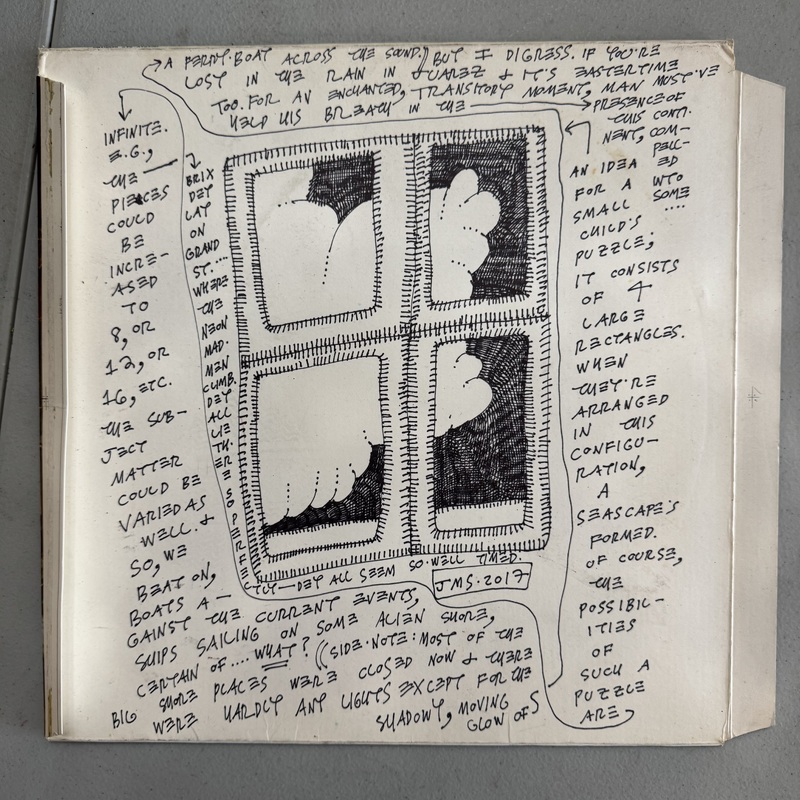 AN IDEA
FOR A
SMALL
CHILD'S
PUZZLE;
IT CONSISTS
OF 4
LARGE
RECTANGLES.
WHEN
THEY'RE
ARRANGED
IN THIS
CONFIGU-
RATION,
A
SEASCAPE'S
FORMED.
OF COURSE,
THE
POSSIBIL-
ITIES
OF
SUCH A
PUZZLE
ARE,
INFINITE.
E.G.,
THE
PIECES
COULD
BE
INCRE-
ASED
TO
8, OR
12, OR
16, ETC.
THE SUB-
JECT
MATTER
COULD BE
VARIED AS
WELL. &
SO, WE
BEAT ON,
BOATS A-
GAINST THE CURRENT EVENTS,
SHIPS SAILING ON SOME ALIEN SHORE,
CERTAIN OF.... WHAT? (SIDE-NOTE: MOST OF THE
BIG SHORE PLACES WERE CLOSED NOW & THERE
WERE HARDLY ANY LIGHTS EXCEPT FOR THE
SHADOWY, MOVING
GLOW OF
A FERRY-BOAT ACROSS THE SOUND.) BUT I DIGRESS. IF YOU'RE
LOST IN THE RAIN IN JUAREZ & IT'S EASTERTIME
TOO. FOR AN ENCHANTED, TRANSITORY MOMENT, MAN MUST'VE
HELD HIS BREATH IN THE
PRESENCE OF
THIS CONTI-
NENT, COM-
PELL-
ED
INTO
SOME
....
BRIX
DEY
LAY
ON
GRAND
ST....
WHERE
THE
NEON
MAD-
MEN
CLIMB.
DEY
ALL
LIE
TH-
ER
E
SO PERFEC
TLY—DEY ALL SEEM SO WELL TIMED.
JMS·2017